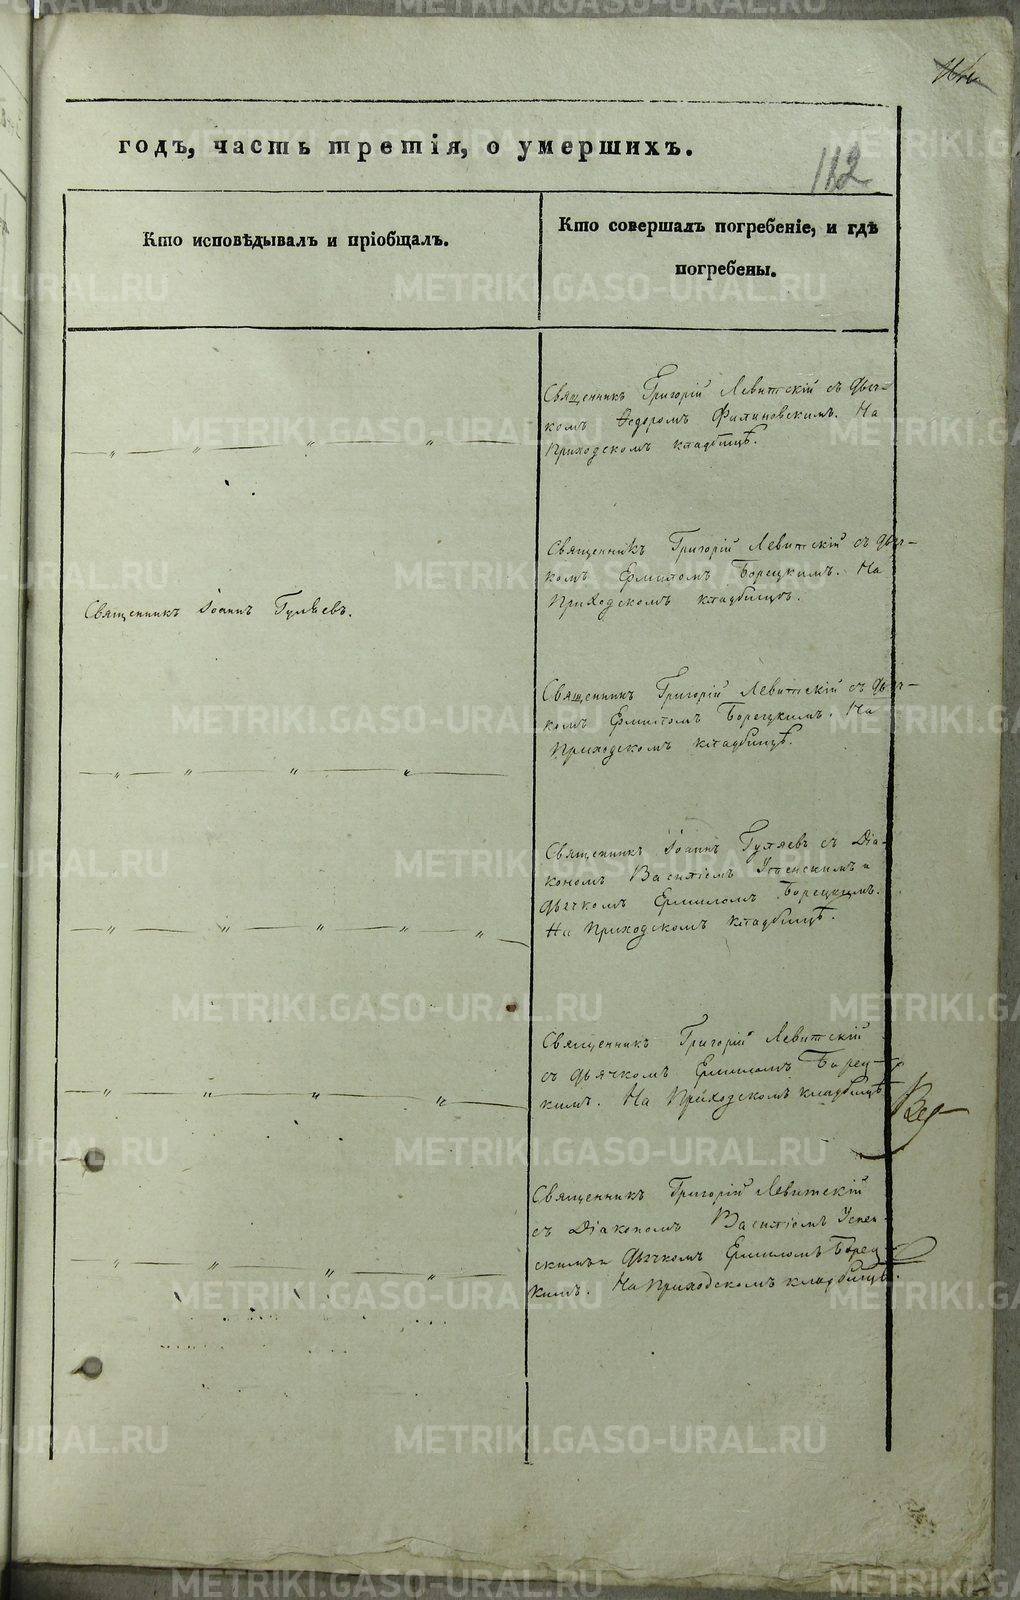 годъ, часть третія, о умершихъ.
112
Кто исповѣдывалъ и пріобщалъ.
Кто совершалъ погребеніе, и гдѣ
погребены.
Священникъ Григорій Левитскій съ дьяч-
комъ Ѳедоромъ Филиновскимъ. На
Приходскомъ кладбищѣ.
Священникъ Іоаннъ Гуляевъ.
Священникъ Григорій Левитскій съ дьяч-
комъ Ермиломъ Борецкимъ. На
Приходскомъ кладбищѣ.
Священникъ Григорій Левитскій съ дьяч-
комъ Ермиломъ Борецкимъ. На
Приходскомъ кладбищѣ.
Священникъ Іоаннъ Гуляевъ съ Діа-
кономъ Василіемъ Успенскимъ и
дьячкомъ Ермиломъ Борецкимъ.
На Приходскомъ кладбищѣ.
Священникъ Григорій Левитскій
съ дьячкомъ Ермиломъ Борец-
кимъ. На Приходскомъ кладбищѣ
Священникъ Григорій Левитскій
съ Діакономъ Василіемъ Успен-
скимъ и дьячкомъ Ермиломъ Борец-
кимъ. На Приходскомъ кладбищѣ.
METRIKI.GASO-URAL.RU